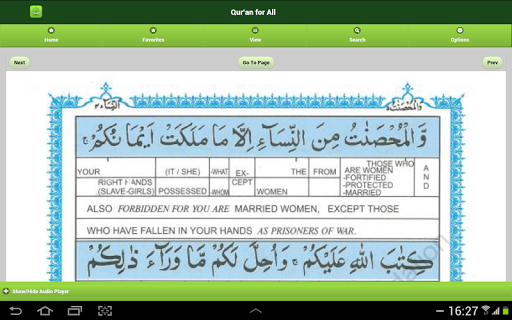 Qur'an for All
Home
Favorites
View
Search
Options
Next
Go To Page
Prev
النساء ٤
والمحصنت ٥
وَّالْمُحْصَنٰتُ مِنَ النِّسَآءِ اِلَّا مَا مَلَكَتْ اَيْمَانُكُمْ ۚ
YOUR (IT / SHE) -WHAT EX- THE FROM THOSE WHO ARE WOMEN A
RIGHT HANDS (SLAVE-GIRLS) POSSESSED -WHOM CEPT WOMEN -FORTIFIED -PROTECTED -MARRIED N D
ALSO FORBIDDEN FOR YOU ARE MARRIED WOMEN, EXCEPT THOSE
WHO HAVE FALLEN IN YOUR HANDS AS PRISONERS OF WAR.
كِتٰبَ اللّٰهِ عَلَيْكُمْ ۚ وَاُحِلَّ لَكُمْ مَّا وَرَآءَ ذٰلِكُمْ
Show/Hide Audio Player
16:27